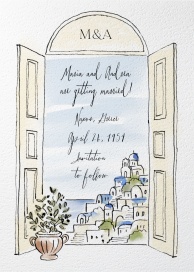 M&A
Maria and Andrea
are getting married!
Naxos, Greece
April 24, 1959
Invitation
to follow